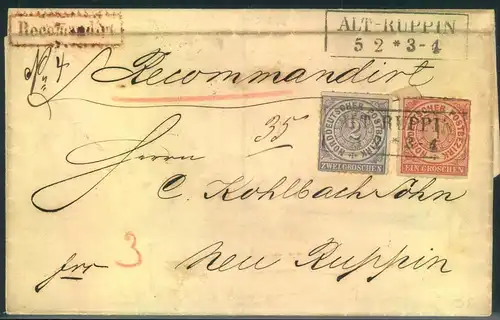 Recomandirt
ALT-RUPPIN
5 2 * 3-4
No 4
Recommandirt
35
NORDDEUTSCHER POSTBEZIRK
2
ZWEI GROSCHEN
NORDDEUTSCHER POSTBEZIRK
EIN GROSCHEN
ALT-RUPPIN
* 3-4
Herrn
C. Kohlbach Söhn
3
frco
Neu Ruppin